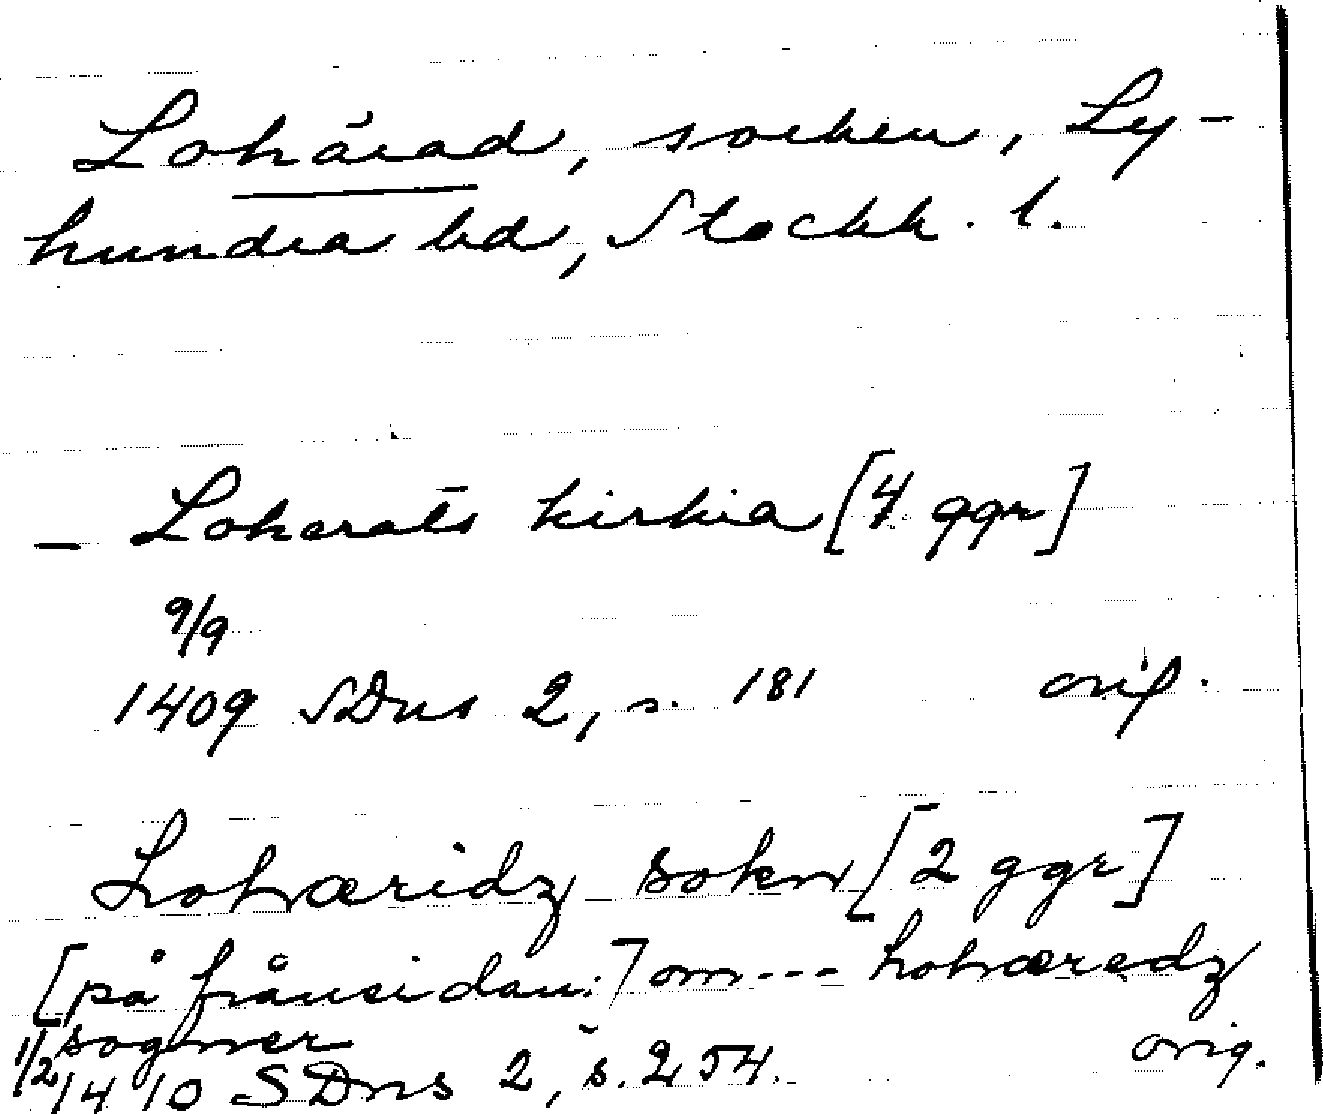 Lohärad, socken, Ly-
hundra hd, Stockh. l.
- Loharats kirkia [4 ggr]
9/9
1409 SDns 2, s. 181 orig.
Lohæridz sokn [2 ggr]
[på frånsidan:] om --- lohæredz
sogner
1/2 1410 SDns 2, s. 254. orig.